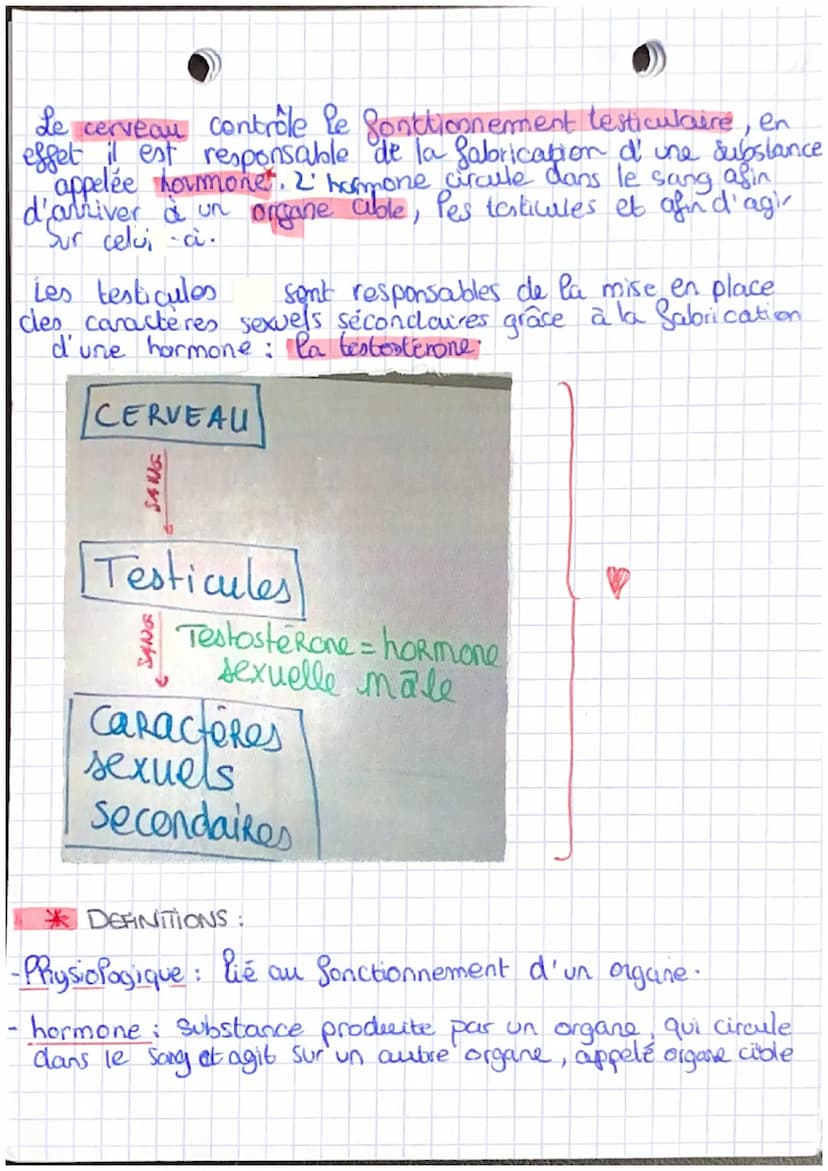 Le cerveau contrôle le fonctionnement testiculaire, en
effet il est responsable de la fabrication d'une substance
appelée hormone*. L'hormone circule dans le sang afin
d'arriver à un organe cible, les testicules et afin d'agir
sur celui-ci.
Les testicules sont responsables de la mise en place
des caractères sexuels sécondaires grâce à la fabrication
d'une hormone : la testostérone.
CERVEAU
SANG
Testicules
SANG
Testostérone = hormone
sexuelle mâle
Caractères
sexuels
secondaires
* DEFINITIONS :
- Physiologique : lié au fonctionnement d'un organe.
- hormone : substance produite par un organe, qui circule
dans le sang et agit sur un autre organe, appelé organe cible